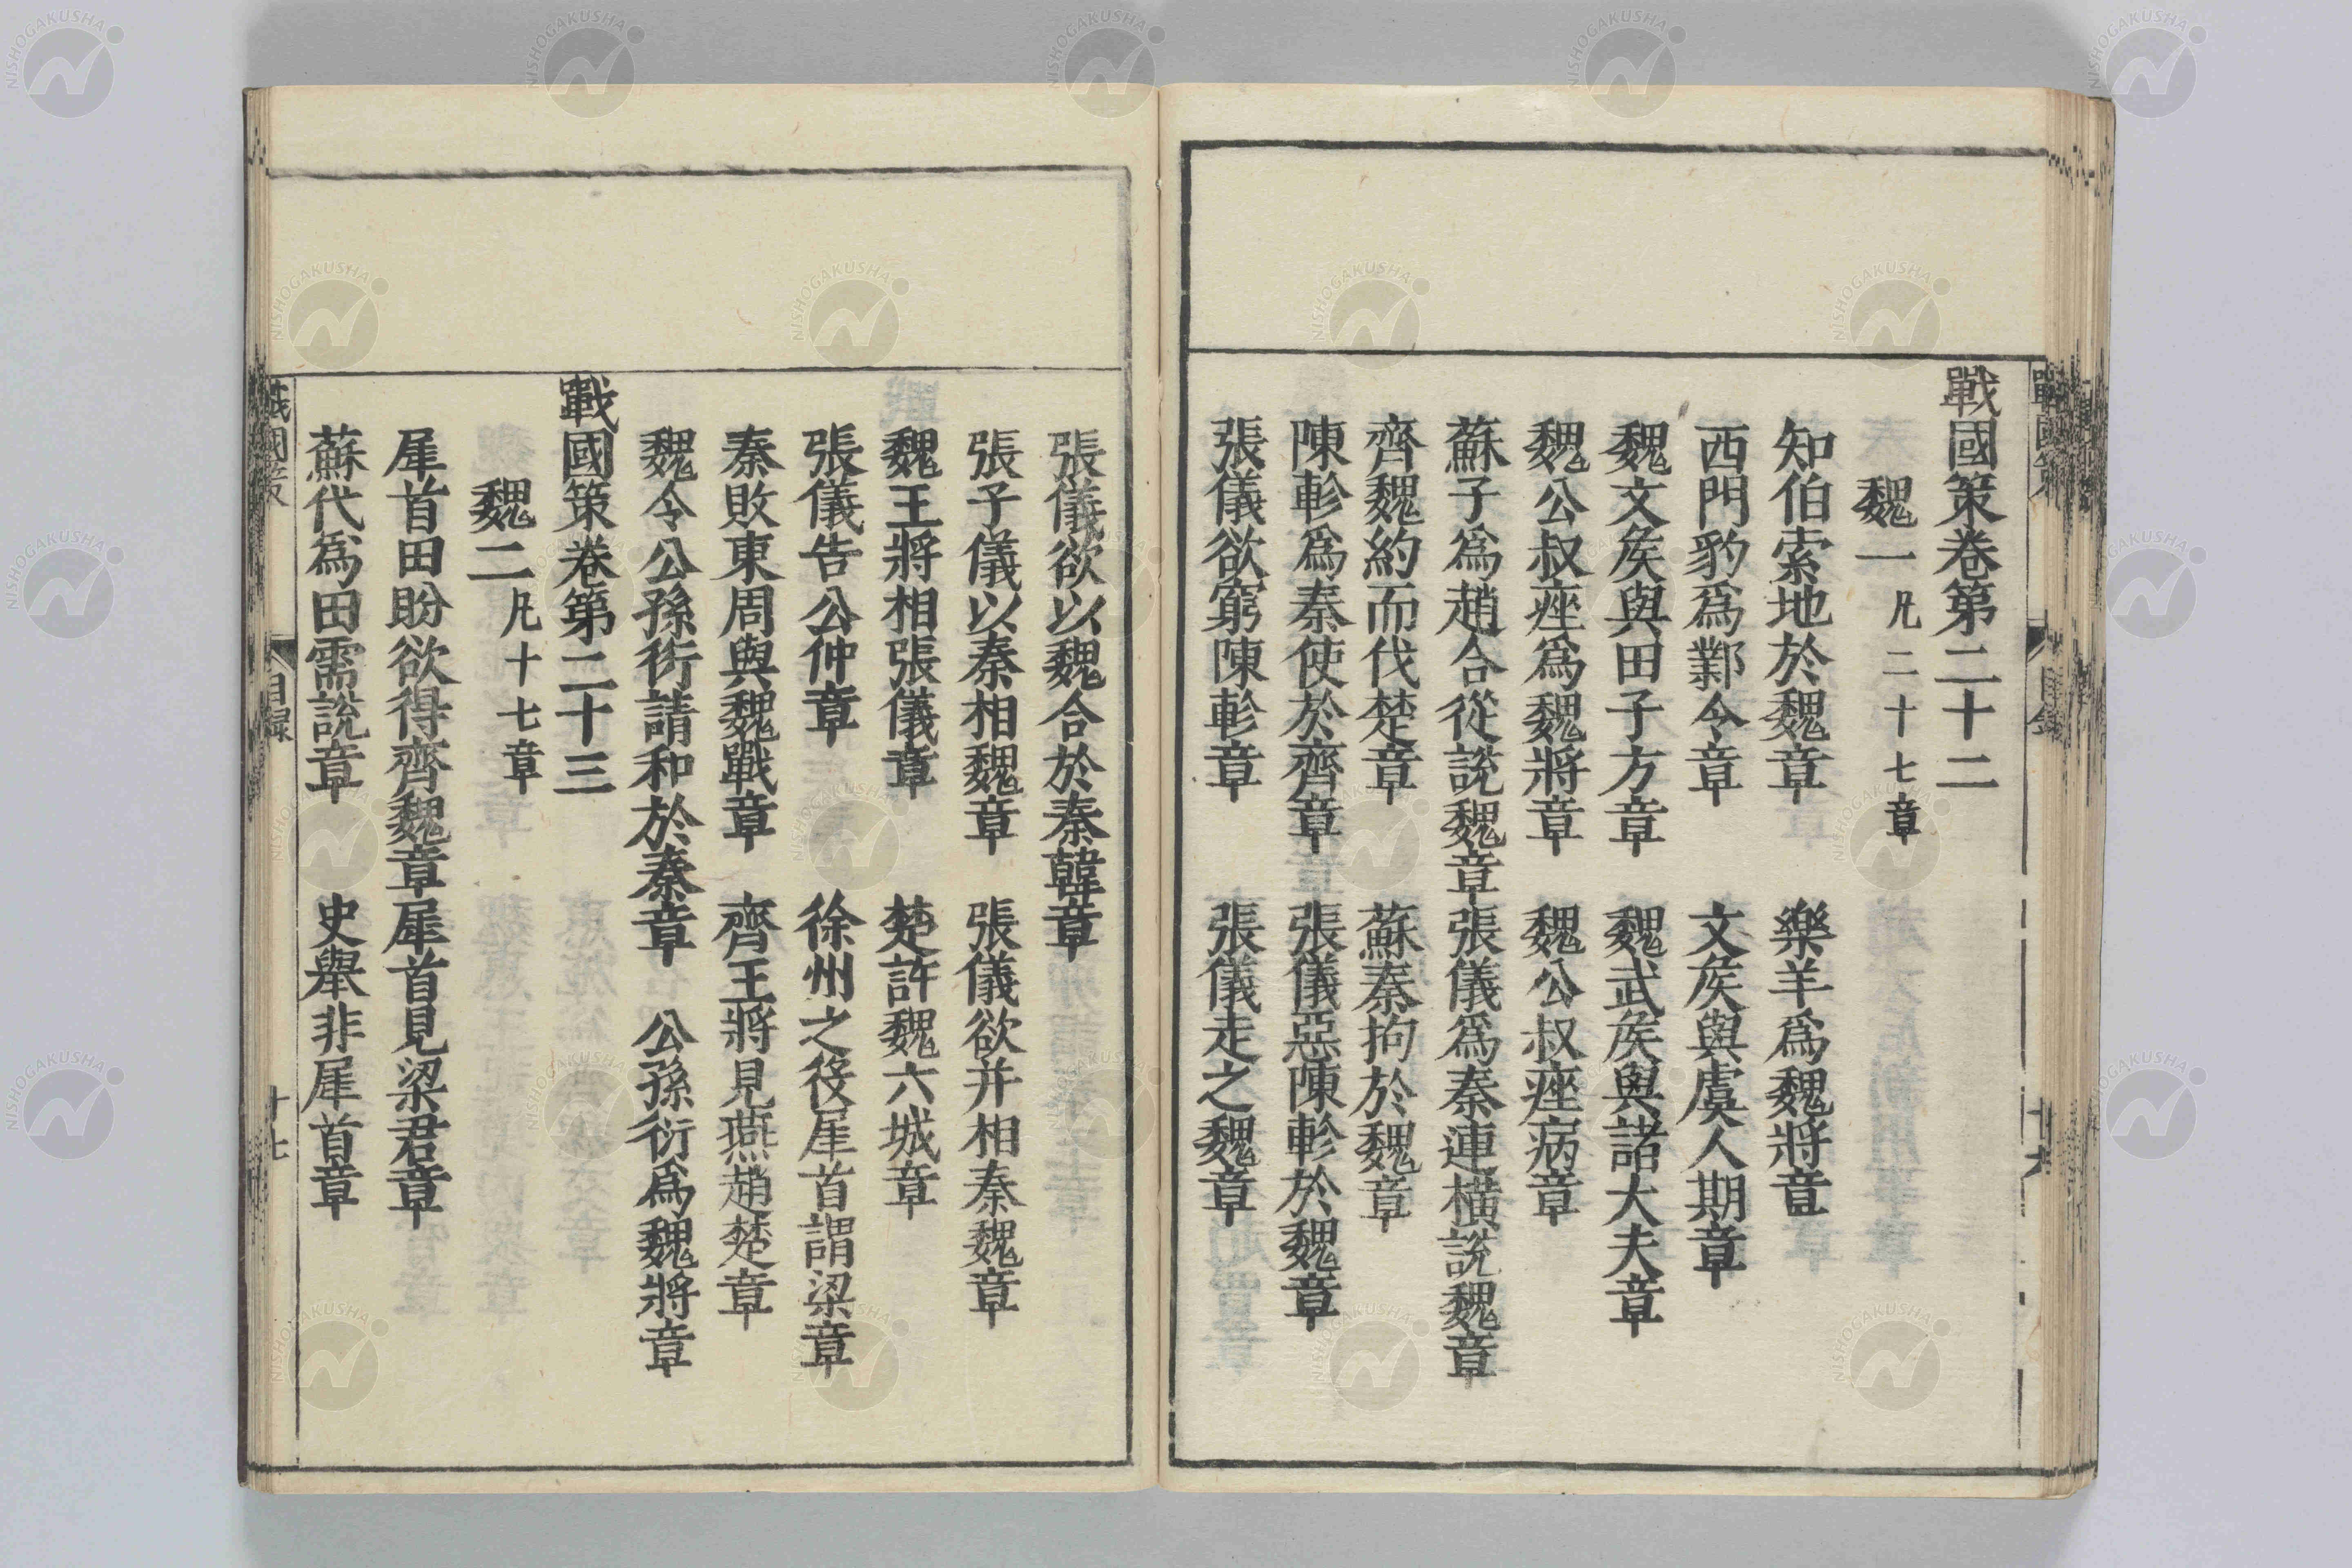 戰國策卷第二十二
魏一 凡二十七章
知伯索地於魏章 樂羊爲魏將章
西門豹爲鄴令章 文矦與虞人期章
魏文矦與田子方章 魏武矦與諸大夫章
魏公叔痤爲魏將章 魏公叔痤病章
蘇子爲趙合從說魏章 張儀爲秦連橫說魏章
齊魏約而伐楚章 蘇秦拘於魏章
陳軫爲秦使於齊章 張儀惡陳軫於魏章
張儀欲窮陳軫章 張儀走之魏章
張儀欲以魏合於秦韓章
張子儀以秦相魏章 張儀欲并相秦魏章
魏王將相張儀章 楚許魏六城章
張儀告公仲章 徐州之役犀首謂梁章
秦敗東周與魏戰章 齊王將見燕趙楚章
魏令公孫衍請和於秦章 公孫衍爲魏將章
戰國策卷第二十三
魏二 凡十七章
犀首田盼欲得齊魏章 犀首見梁君章
蘇代爲田需說章 史舉非犀首章
戰國策 目錄 十七
NISHOGAKUSHA